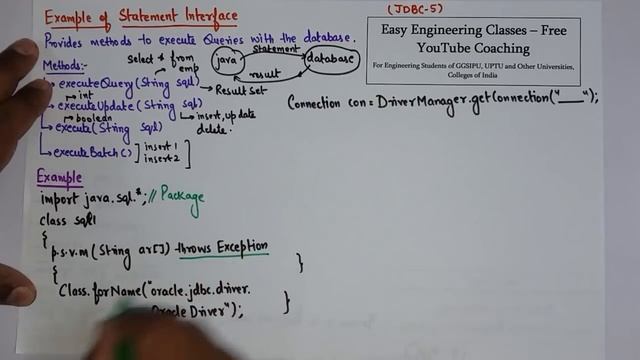 (JDBC-5)
Example of Statement Interface
Provides methods to execute Queries with the database.
Easy Engineering Classes – Free
YouTube Coaching
For Engineering Students of GGSIPU, UPTU and Other Universities,
Colleges of India
Methods:-
select * from
emp
java
Statement
database
result
executeQuery(String sql)
Result Set
int
executeUpdate(String sql)
insert, update
delete.
boolean
execute(String sql)
executeBatch()
insert 1
insert 2
Connection con = DriverManager.getConnection("___");
Example
import java.sql.*; // Package
class sql1
{
p.s.v.m (String ar[]) throws Exception
{
Class.forName("oracle.jdbc.driver.
OracleDriver");
}
}